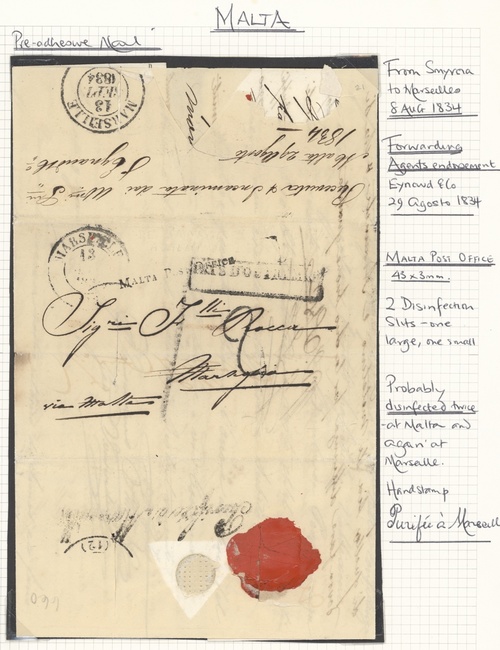 MALTA
Pre-adhesive Mail
From Smyrna
to Marseilles
8 AUG 1834
Forwarding
Agents endorsement
Eynaud & Co
29 Agosto 1834
MALTA POST OFFICE
45 x 3mm.
2 Disinfection
Slits - one
large, one small
Probably
disinfected twice
at Malta and
again at
Marseille.
Handstamp
Purifié à Marseille
MARSEILLE
13
SEPT
1834
1834
Malta 29 Agosto
Eynaud & Co
MARSEILLE
13
MALTA POST OFFICE
PAYS D'OUTREMER
Sigri Flli Rocca
Marsiglia
via Malta
(12)